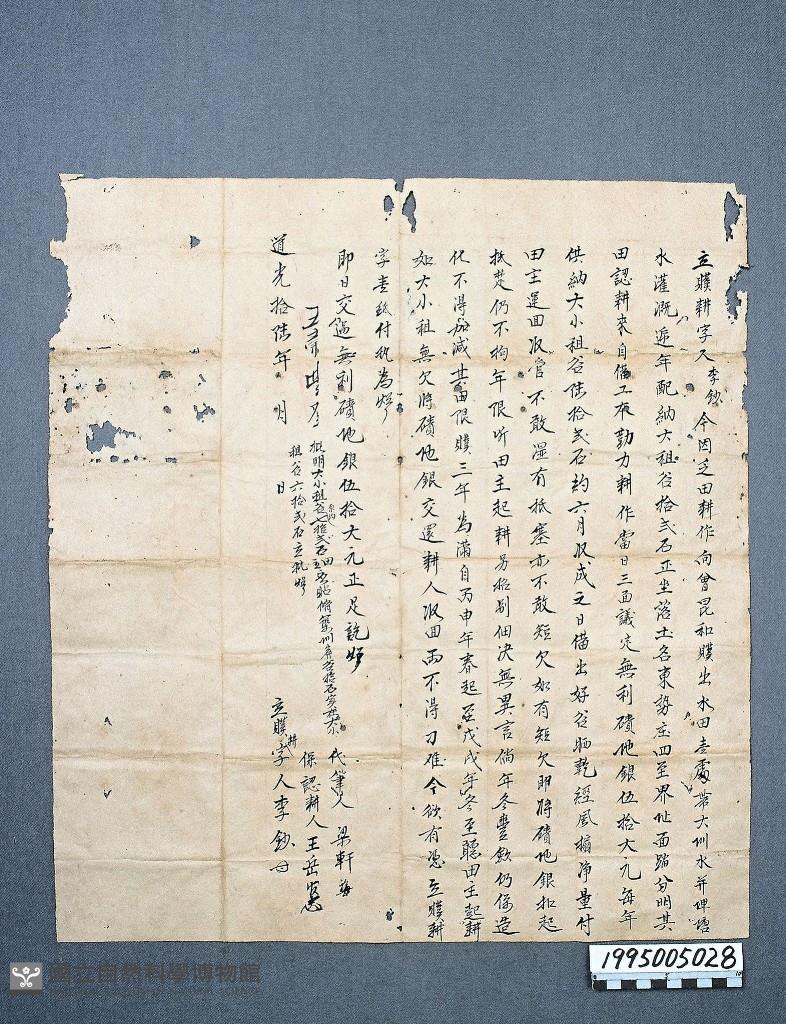 立贌耕字人李鈔今因乏田耕作向曾昆和贌出水田壹處帶大圳水并埤塘
水灌溉遞年配納大租谷拾弍石正坐落土名東勢庄四至界址面踏分明其
田認耕來自備工本勤力耕作當日三面議定無利磧地銀伍拾大元每年
供納大小租谷陸拾弍石約六月收成之日備出好谷晒乾經風搧净量付
田主運回收管不敢湿有抵塞亦不敢短欠如有短欠即將磧地銀扣起
抵楚仍不拘年限听田主起耕另招別佃決無異言倘年冬豐歉仍係造
化不得加減其田限贌三年為滿自丙申年春起至戊戌年冬至聽田主起耕
如大小租無欠將磧地銀交還耕人收回兩不得刁难今欲有憑立贌耕
字壹紙付执為炤
即日交過無利磧地銀伍拾大元正足訖炤
批明大小租谷七拾弍石田主貼脩舊圳角谷拾石實納大小
租谷六拾弍石立批炤
代筆人 梁軒
保認耕人 王岳
道光拾陸年 月 日
立贌耕字人李鈔
1995005028
國立自然科學博物館